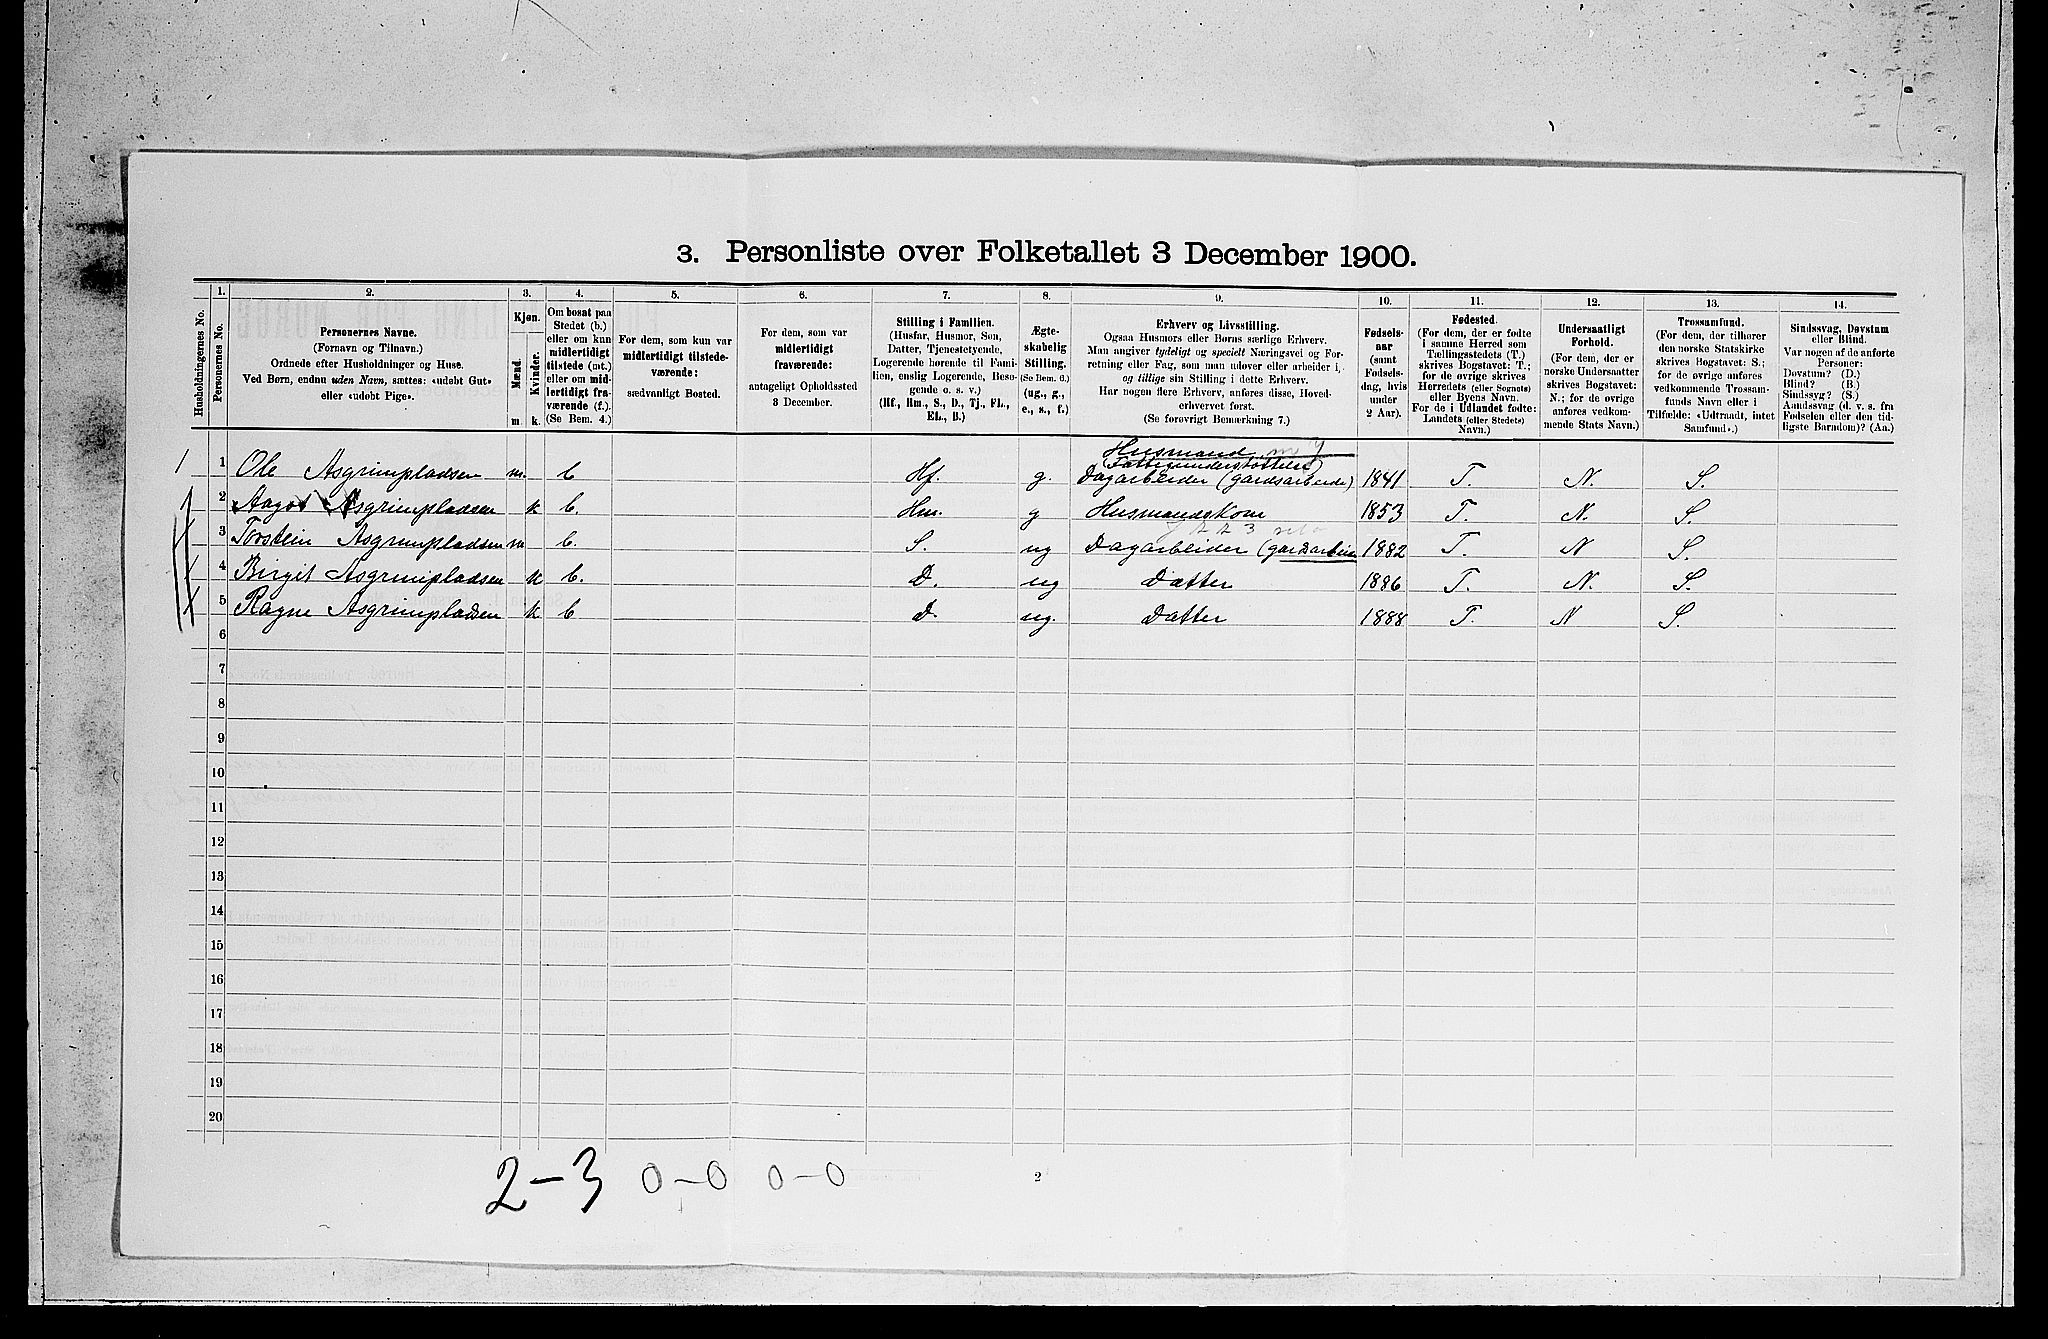 3. Personliste over Folketallet 3 December 1900.
Husholdningernes No.
1. Personernes No.
2. Personernes Navne.
(Fornavn og Tilnavn.)
Ordnede efter Husholdninger og Huse.
Ved Børn, endnu uden Navn, sættes: «udøbt Gut»
eller «udøbt Pige».
3. Kjøn.
Mænd. m.
Kvinder. k.
4. Om bosat paa
Stedet (b.)
eller om kun
midlertidigt
tilstede (mt.)
eller om mid-
lertidigt fra-
værende (f.).
(Se Bem. 4.)
5. For dem, som kun var
midlertidigt tilstede-
værende:
sædvanligt Bosted.
6. For dem, som var
midlertidigt
fraværende:
antageligt Opholdssted
3 December.
7. Stilling i Familien.
(Husfar, Husmor, Søn,
Datter, Tjenestetyende,
Logerende hørende til Fami-
lien, enslig Logerende, Besø-
gende o. s. v.)
(Hf., Hm., S., D., Tj., FL.,
EL., B.)
8. Ægte-
skabelig
Stilling.
(Se Bem. 6.)
(ug., g.,
e., s., f.)
9. Erhverv og Livsstilling.
Ogsaa Husmors eller Børns særlige Erhverv.
Man angiver tydeligt og specielt Næringsvei og For-
retning eller Fag, som man udøver eller arbeider i,
og tillige sin Stilling i dette Erhverv.
Har nogen flere Erhverv, anføres disse, Hoved-
erhvervet først.
(Se forøvrigt Bemærkning 7.)
10. Fødsels-
aar
(samt
Fødsels-
dag, hvis
under
2 Aar).
11. Fødested.
(For dem, der er fødte
i samme Herred som
Tællingsstedets (T.)
skrives Bogstavet: T.;
for de øvrige skrives
Herredets (eller Sognets)
eller Byens Navn.
For de i Udlandet fødte:
Landets (eller Stedets)
Navn.)
12. Undersaatligt
Forhold.
(For dem, der er
norske Undersaatter
skrives Bogstavet:
N.; for de øvrige
anføres vedkom-
mende Stats Navn.)
13. Trossamfund.
(For dem, der tilhører
den norske Statskirke
skrives Bogstavet: S.;
for de øvrige anføres
vedkommende Trossam-
funds Navn eller i
Tilfælde: «Udtraadt, intet
Samfund».)
14. Sindssvag, Døvstum
eller Blind.
Var nogen af de anførte
Personer:
Døvstum? (D.)
Blind? (B.)
Sindssyg? (S.)
Aandssvag (d. v. s. fra
Fødselen eller den tid-
ligste Barndom)? (Aa.)
Husmand
(Fattigunderstøttelse)
1 1 Ole Asgrimpladsen m. b Hf. g. Dagarbeider (gardsarbeide) 1841 T. N. S.
2 Aagot Asgrimpladsen k b. Hm. g Husmandskone 1853 T. N. S.
3 Torstein Asgrimpladsen m b. S. ug Dagarbeider (gardsarbeide 1882 T. N S.
4 Birgit Asgrimpladsen k b. D. ug Datter 1886 T. N. S.
5 Ragne Asgrimpladsen k b D. ug. Datter 1888 T. N S.
6
7
8
9
10
11
12
13
14
15
16
17
18
19
20
2-3 0-0 0-0
2